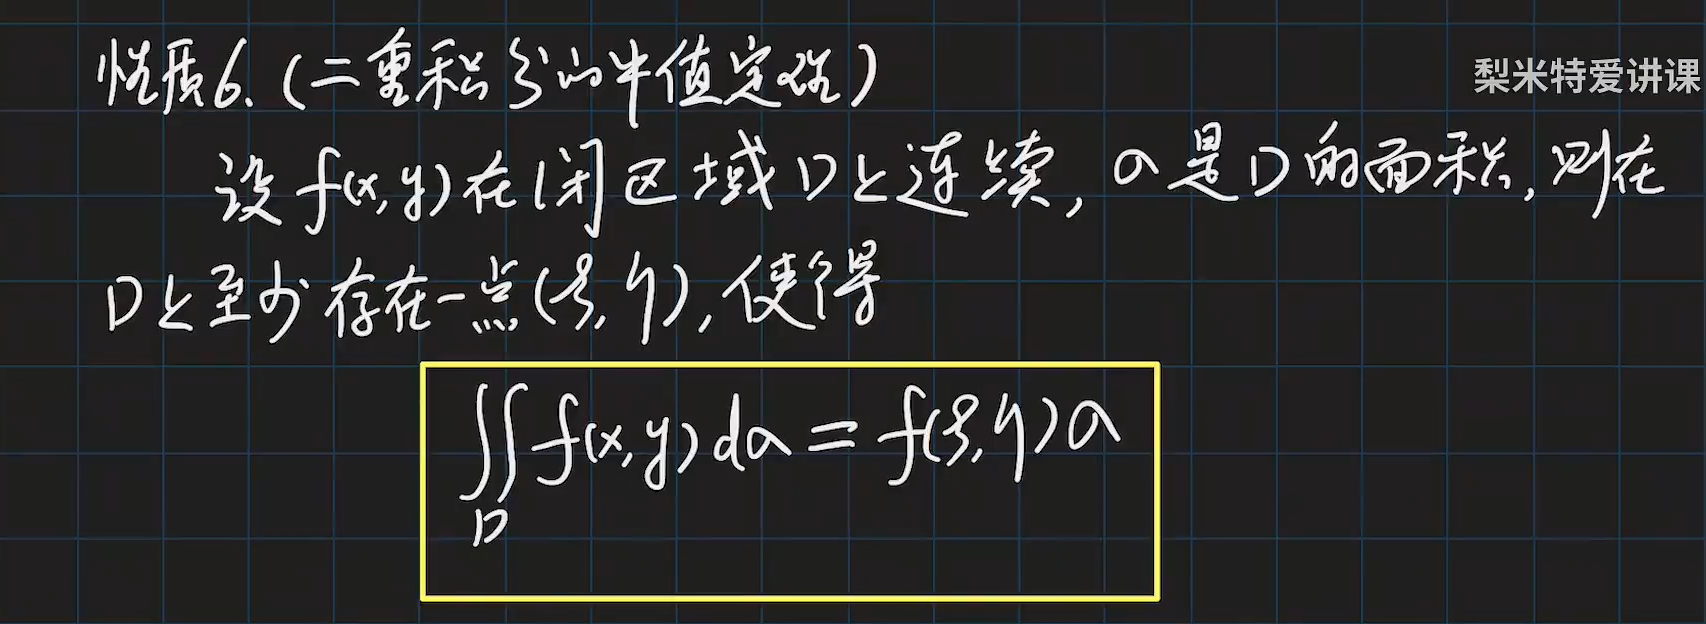 性质6.(二重积分的中值定理)
梨米特爱讲课
设f(x,y)在闭区域D上连续,σ是D的面积,则在
D上至少存在一点(ξ,η),使得
∬f(x,y)dσ=f(ξ,η)σ
D